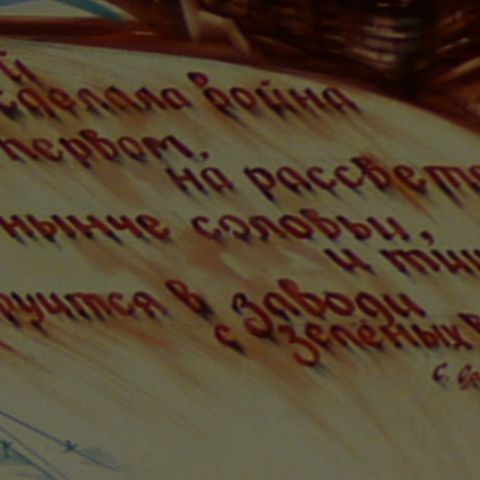 й
сделала война
первом,
на рассвете
нынче соловьи,
и
в заводи
с зелёных
С.